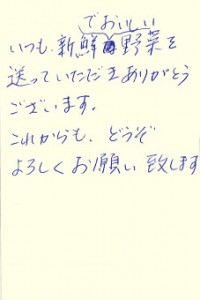 いつも、新鮮でおいしい野菜を
送っていただきありがとう
ございます。
これからも、どうぞ
よろしくお願い致します